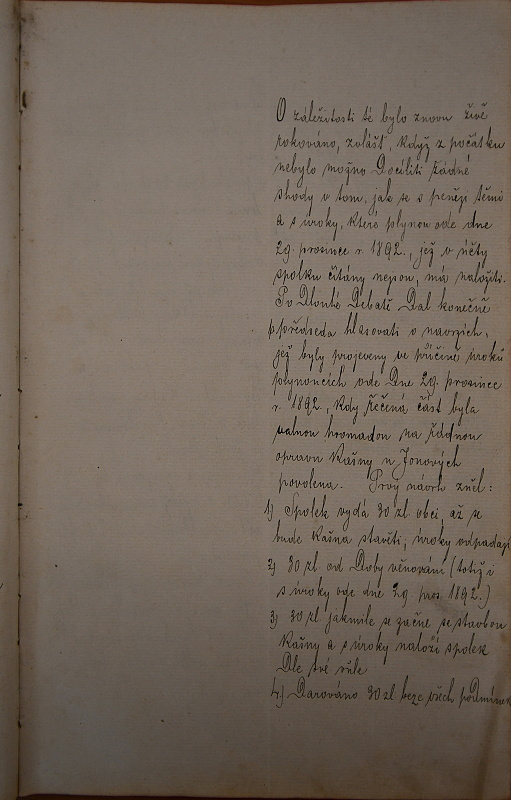 O záležitosti té bylo znovu živě
rokováno, zvlášť, když z počátku
nebylo možno docíliti žádné
shody v tom, jak se s penězi těmi
a s úroky, které plynou ode dne
29. prosince r. 1892., jež v účty
spolku čítány nejsou, má naložiti.
Po dlouhé debatě dal konečně
p. předseda hlasovati o navrzích,
jež byly projeveny ve příčině úroků
plynoucích ode dne 29. prosince
r. 1892., kdy řečená část byla
valnou hromadou na řádnou
opravu kašny u Jonových
povolena. Prvý návrh zněl:
1) Spolek vydá 30 zl. obci, až se
bude kašna stavěti; úroky odpadají
2) 30 zl. od doby věnování (totiž i
s úroky ode dne 29. pros. 1892.)
3) 30 zl. jakmile se začne se stavbou
kašny a s úroky naloží spolek
dle své vůle
4.) Darováno 30 zl. beze všech podmínek